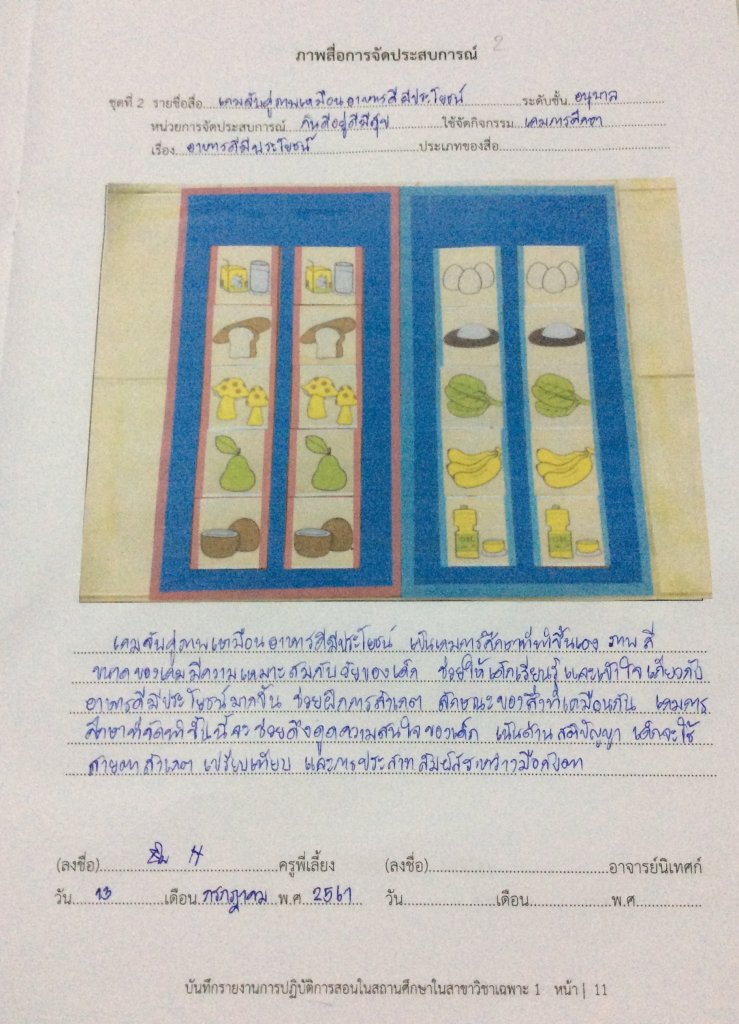 2
ภาพสื่อการจัดประสบการณ์
ชุดที่ 2 รายชื่อสื่อ....เกมจับคู่ภาพเหมือนอาหารดีมีประโยชน์....ระดับชั้น..อนุบาล
หน่วยการจัดประสบการณ์ กินดีอยู่ดีมีสุข ใช้จัดกิจกรรม เกมการศึกษา
เรื่อง..อาหารดีมีประโยชน์....ประเภทของสื่อ....
เกมจับคู่ภาพเหมือนอาหารดีมีประโยชน์ เป็นเกมการศึกษาที่ทำขึ้นเอง ภาพ สี
ขนาดของเกมมีความเหมาะสมกับวัยของเด็ก ช่วยให้เด็กเรียนรู้และเข้าใจเกี่ยวกับ
อาหารดีมีประโยชน์มากขึ้น ช่วยฝึกการสังเกต ลักษณะของสิ่งที่เหมือนกัน เกมการ
ศึกษาที่จัดทำขึ้นนี้จะช่วยดึงดูดความสนใจของเด็ก เน้นด้านสติปัญญา เด็กจะใช้
สายตาสังเกต เปรียบเทียบ และการประสาทสัมผัสระหว่างมือกับตา
(ลงชื่อ)....ครูพี่เลี้ยง (ลงชื่อ)....อาจารย์นิเทศก์
วัน..13..เดือน กรกฎาคม พ.ศ. 2561 วัน....เดือน....พ.ศ....
บันทึกรายงานการปฏิบัติการสอนในสถานศึกษาในสาขาวิชาเฉพาะ 1 หน้า | 11